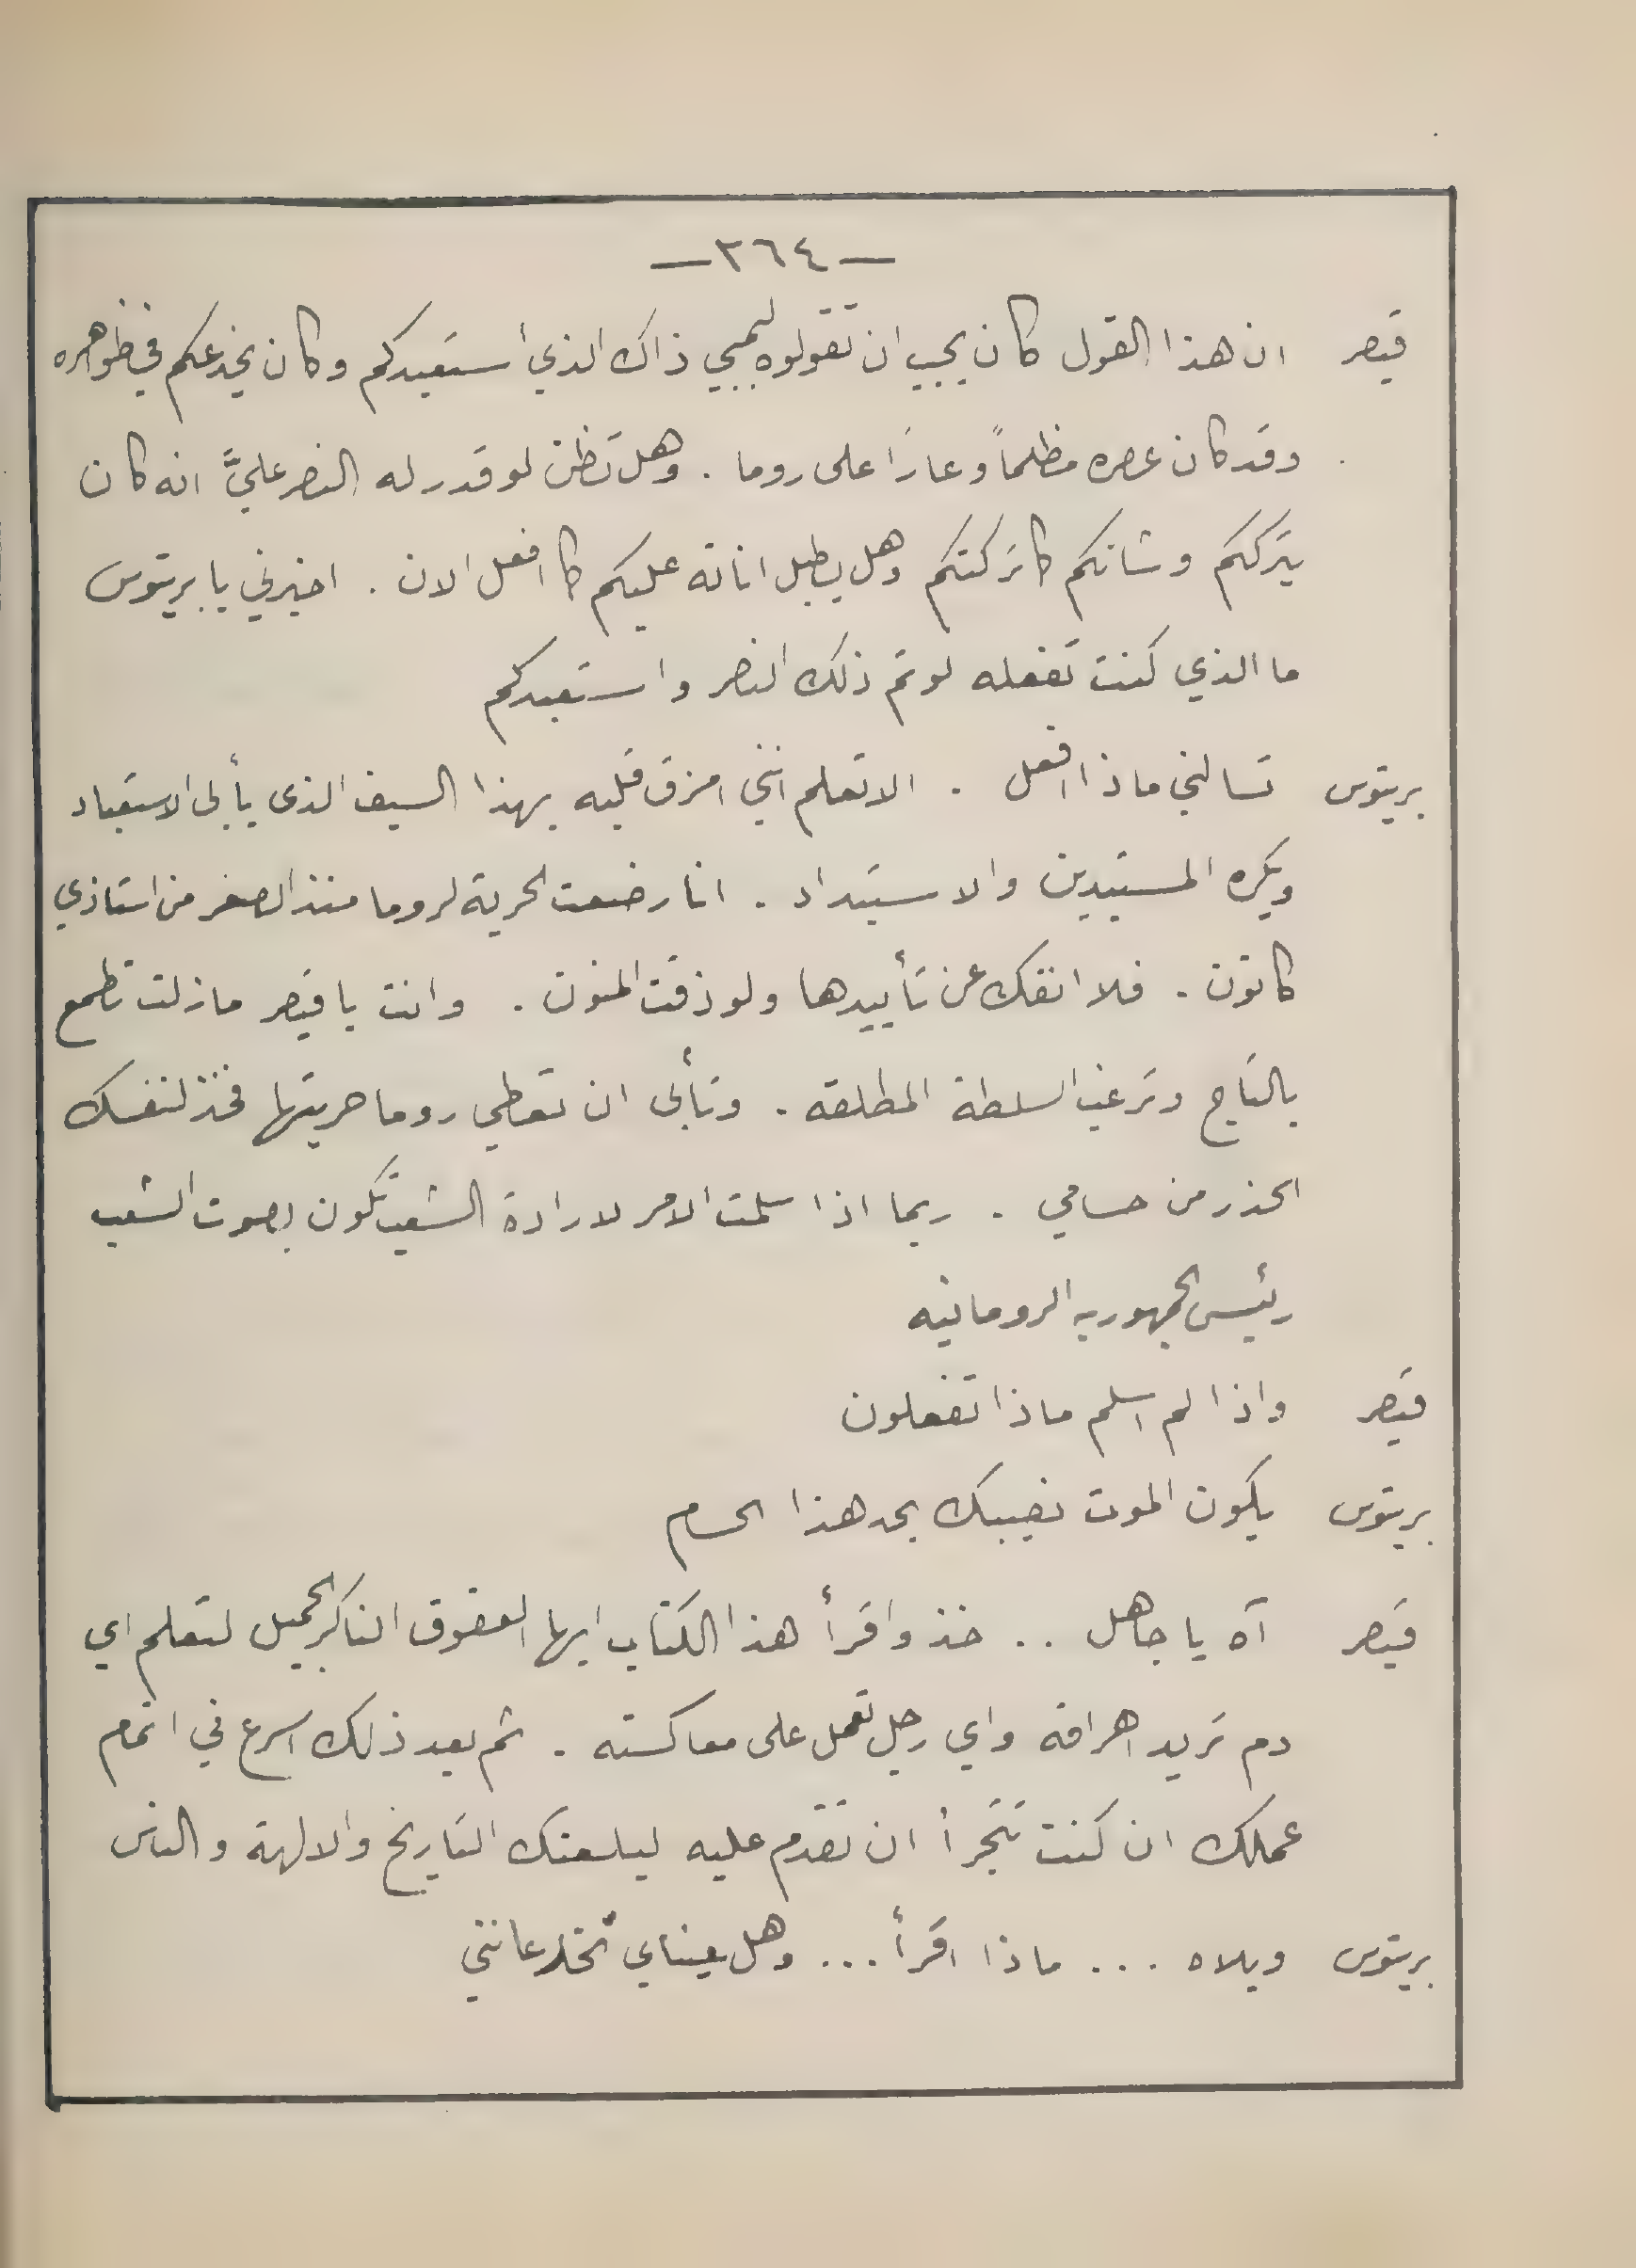 —٢٦٤—
قيصر ان هذا القول كان يجب ان تقولوه لبمبي ذاك الذي استعبدكم وكان يخدعكم في ظواهره
وقد كان عصره مظلماً وعاراً على روما . وهل تظن لو قدر له النصر عليَّ انه كان
يترككم وشانكم كما تركتكم وهل يطيل اناته عليكم كما افعل الان . اخبرني يا بريتوس
ما الذي كنت تفعله لو تم ذلك النصر واستعبدكم
بريتوس تسالني ماذا افعل . الا تعلم انني امزق قلبه بهذا السيف الذى يأبى الاستعباد
ويكره المستبدين والاستبداد . انا رضعت الحرية لروما منذ الصغر من استاذي
كاتون . فلا انفك عن تأييدها ولو ذقت المنون . وانت يا قيصر مازلت تطمع
بالتاج وترغب السلطة المطلقه . وتأبى ان تعطي روما حريتها فخذ لنفسك
الحذر من حسامي . ربما اذا سلمت الامر لارادة الشعب تكون بصوت الشعب
رئيس الجمهوريه الرومانيه
قيصر واذا لم اسلم ماذا تفعلون
بريتوس يكون الموت نصيبك بحد هذا الحسام
قيصر آه يا جاهل .. خذ واقرأ هذا الكتاب ايها العقوق الناكر الجميل لتعلم اي
دم تريد اهراقه واي رجل تعمل على معاكسته . ثم بعد ذلك اسرع في اتمام
عملك ان كنت تتجرأ ان تقدم عليه ليلعنك التاريخ والالهة والناس
بريتوس ويلاه ... ماذا اقرأ ... وهل عيناي تخدعانني